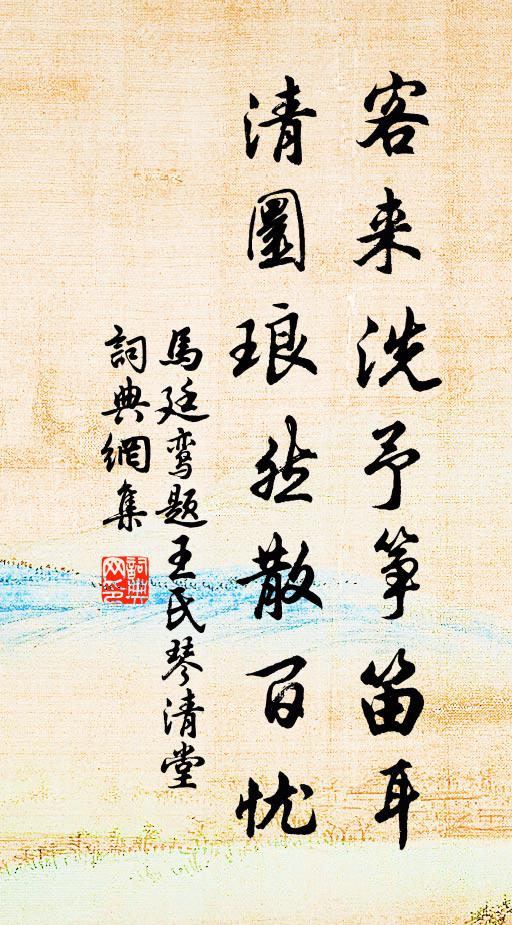 客来洗予筝笛耳
清圜琅然散百忧
馬廷鸾题王氏琴清堂
詞典網集
詞典网印